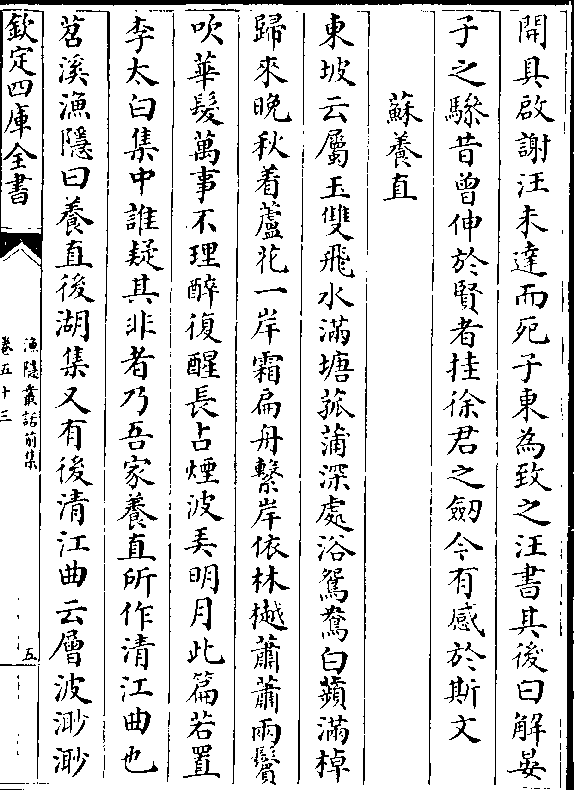 開具啟謝汪未達而死子東為致之汪書其後曰解晏
子之驂昔曾伸於賢者挂徐君之劒今有感於斯文
蘇養直
東坡云屬玉雙飛水滿塘菰蒲深處浴鴛鴦白蘋滿棹
歸來晚秋着蘆花一岸霜扁舟繫岸依林樾蕭蕭兩鬢
吹華髮萬事不理醉復醒長占煙波弄明月此篇若置
李太白集中誰疑其非者乃吾家養直所作清江曲也
苕溪漁隱曰養直後湖集又有後清江曲云層波渺渺
欽定四庫全書
漁隱叢話前集
卷五十三
五